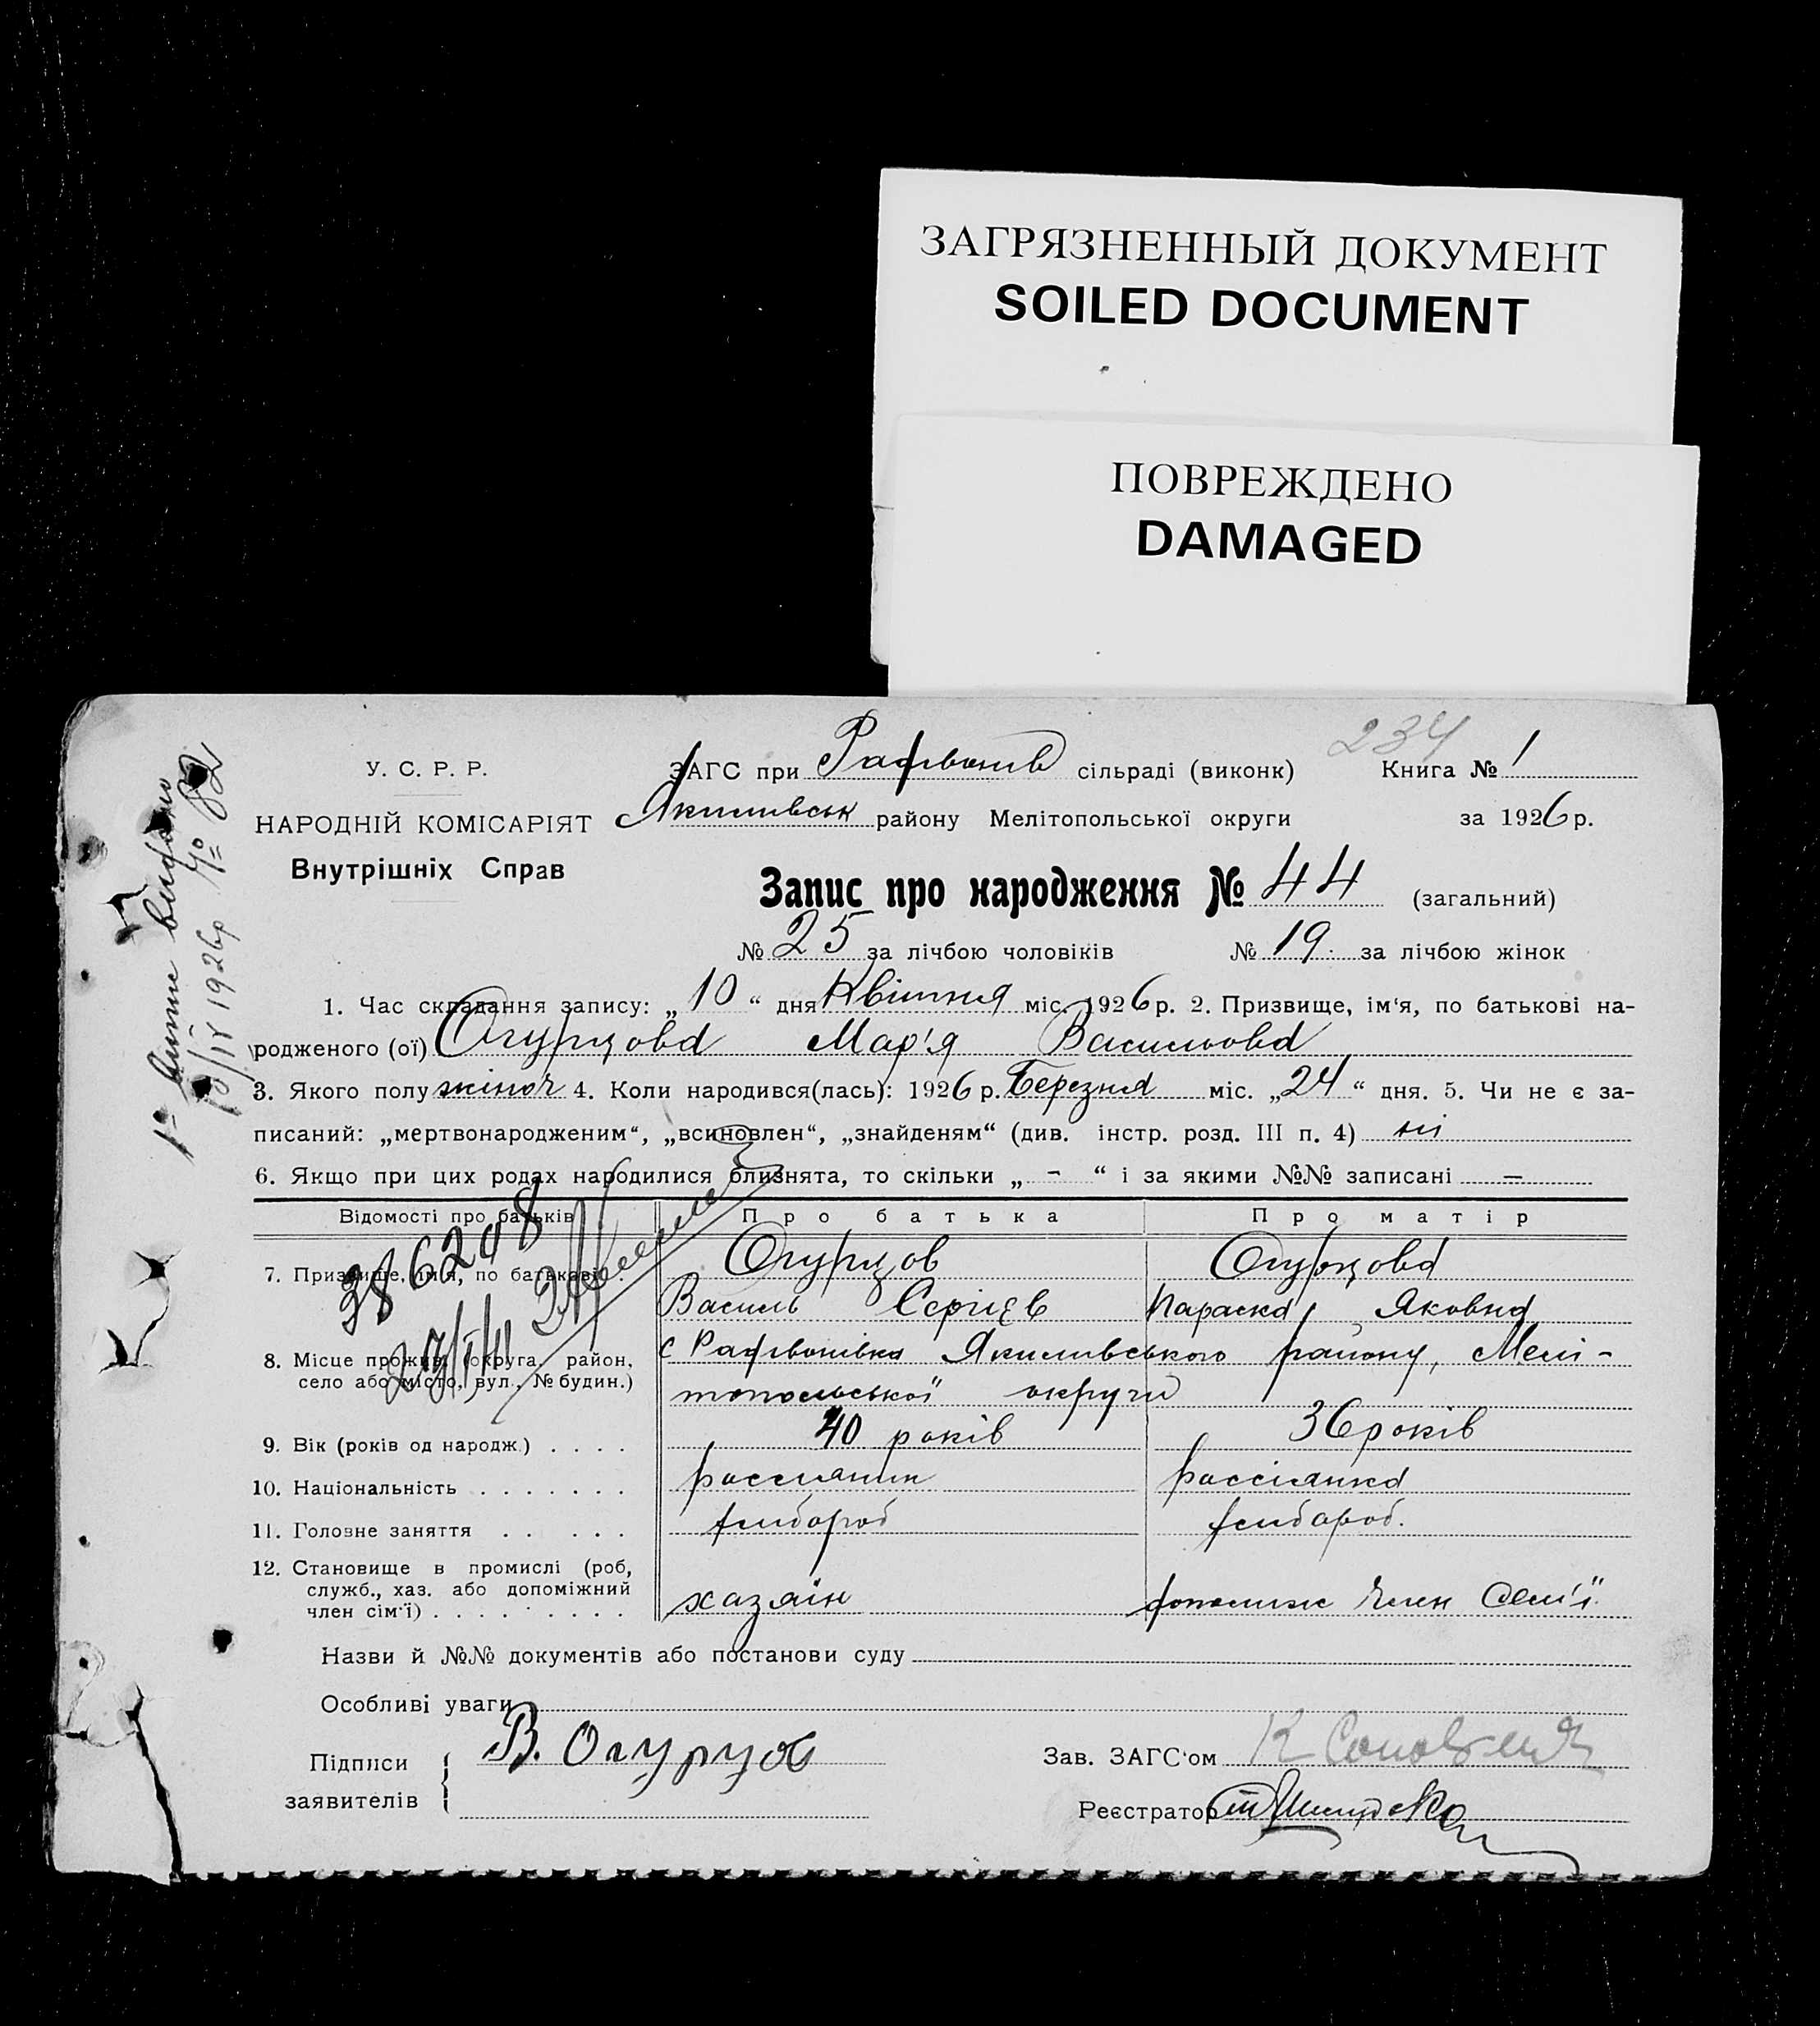 ЗАГРЯЗНЕННЫЙ ДОКУМЕНТ
SOILED DOCUMENT
ПОВРЕЖДЕНО
DAMAGED
234
У. С. Р. Р.
ЗАГС при сільраді (виконк) Книга № 1
НАРОДНІЙ КОМІСАРІЯТ
Якимівськ району Мелітопольської округи за 1926 р.
Внутрішніх Справ
Запис про народження № 44 (загальний)
№ 25 за лічбою чоловіків № 19 за лічбою жінок
1. Час складання запису: „10“ дня Квітня міс. 1926 р. 2. Призвище, ім'я, по батькові на-
родженого (ої) Огурцова Мар'я Васильова
3. Якого полу жіноч 4. Коли народився(лась): 1926 р. Березня міс. „24“ дня. 5. Чи не є за-
писаний: „мертвонародженим“, „всиновлен“, „знайденям“ (див. інстр. розд. III п. 4) ні
6. Якщо при цих родах народилися близнята, то скільки „ – “ і за якими №№ записані —
Відомості про батьків Про батька Про матір
7. Призвище, ім'я, по батькові Огурцов Огурцова
Василь Сергіев Параска Яковна
8. Місце прожив. (округа, район, село або місто, вул., № будин.) с Якимівського району, Мелі-
топольської округи
9. Вік (років од народж.) . . . . 40 років 36 років
10. Національність . . . . . . . россіянин россіянка
11. Головне заняття . . . . . хлібороб хлібороб.
12. Становище в промислі (роб,
служб., хаз. або допоміжний
член сім'ї) . . . . . . . . . хазяїн допоміжн член семі'ї
Назви й №№ документів або постанови суду
Особливі уваги
Підписи
заявителів
В. Огурцов
Зав. ЗАГС'ом
Реєстратор